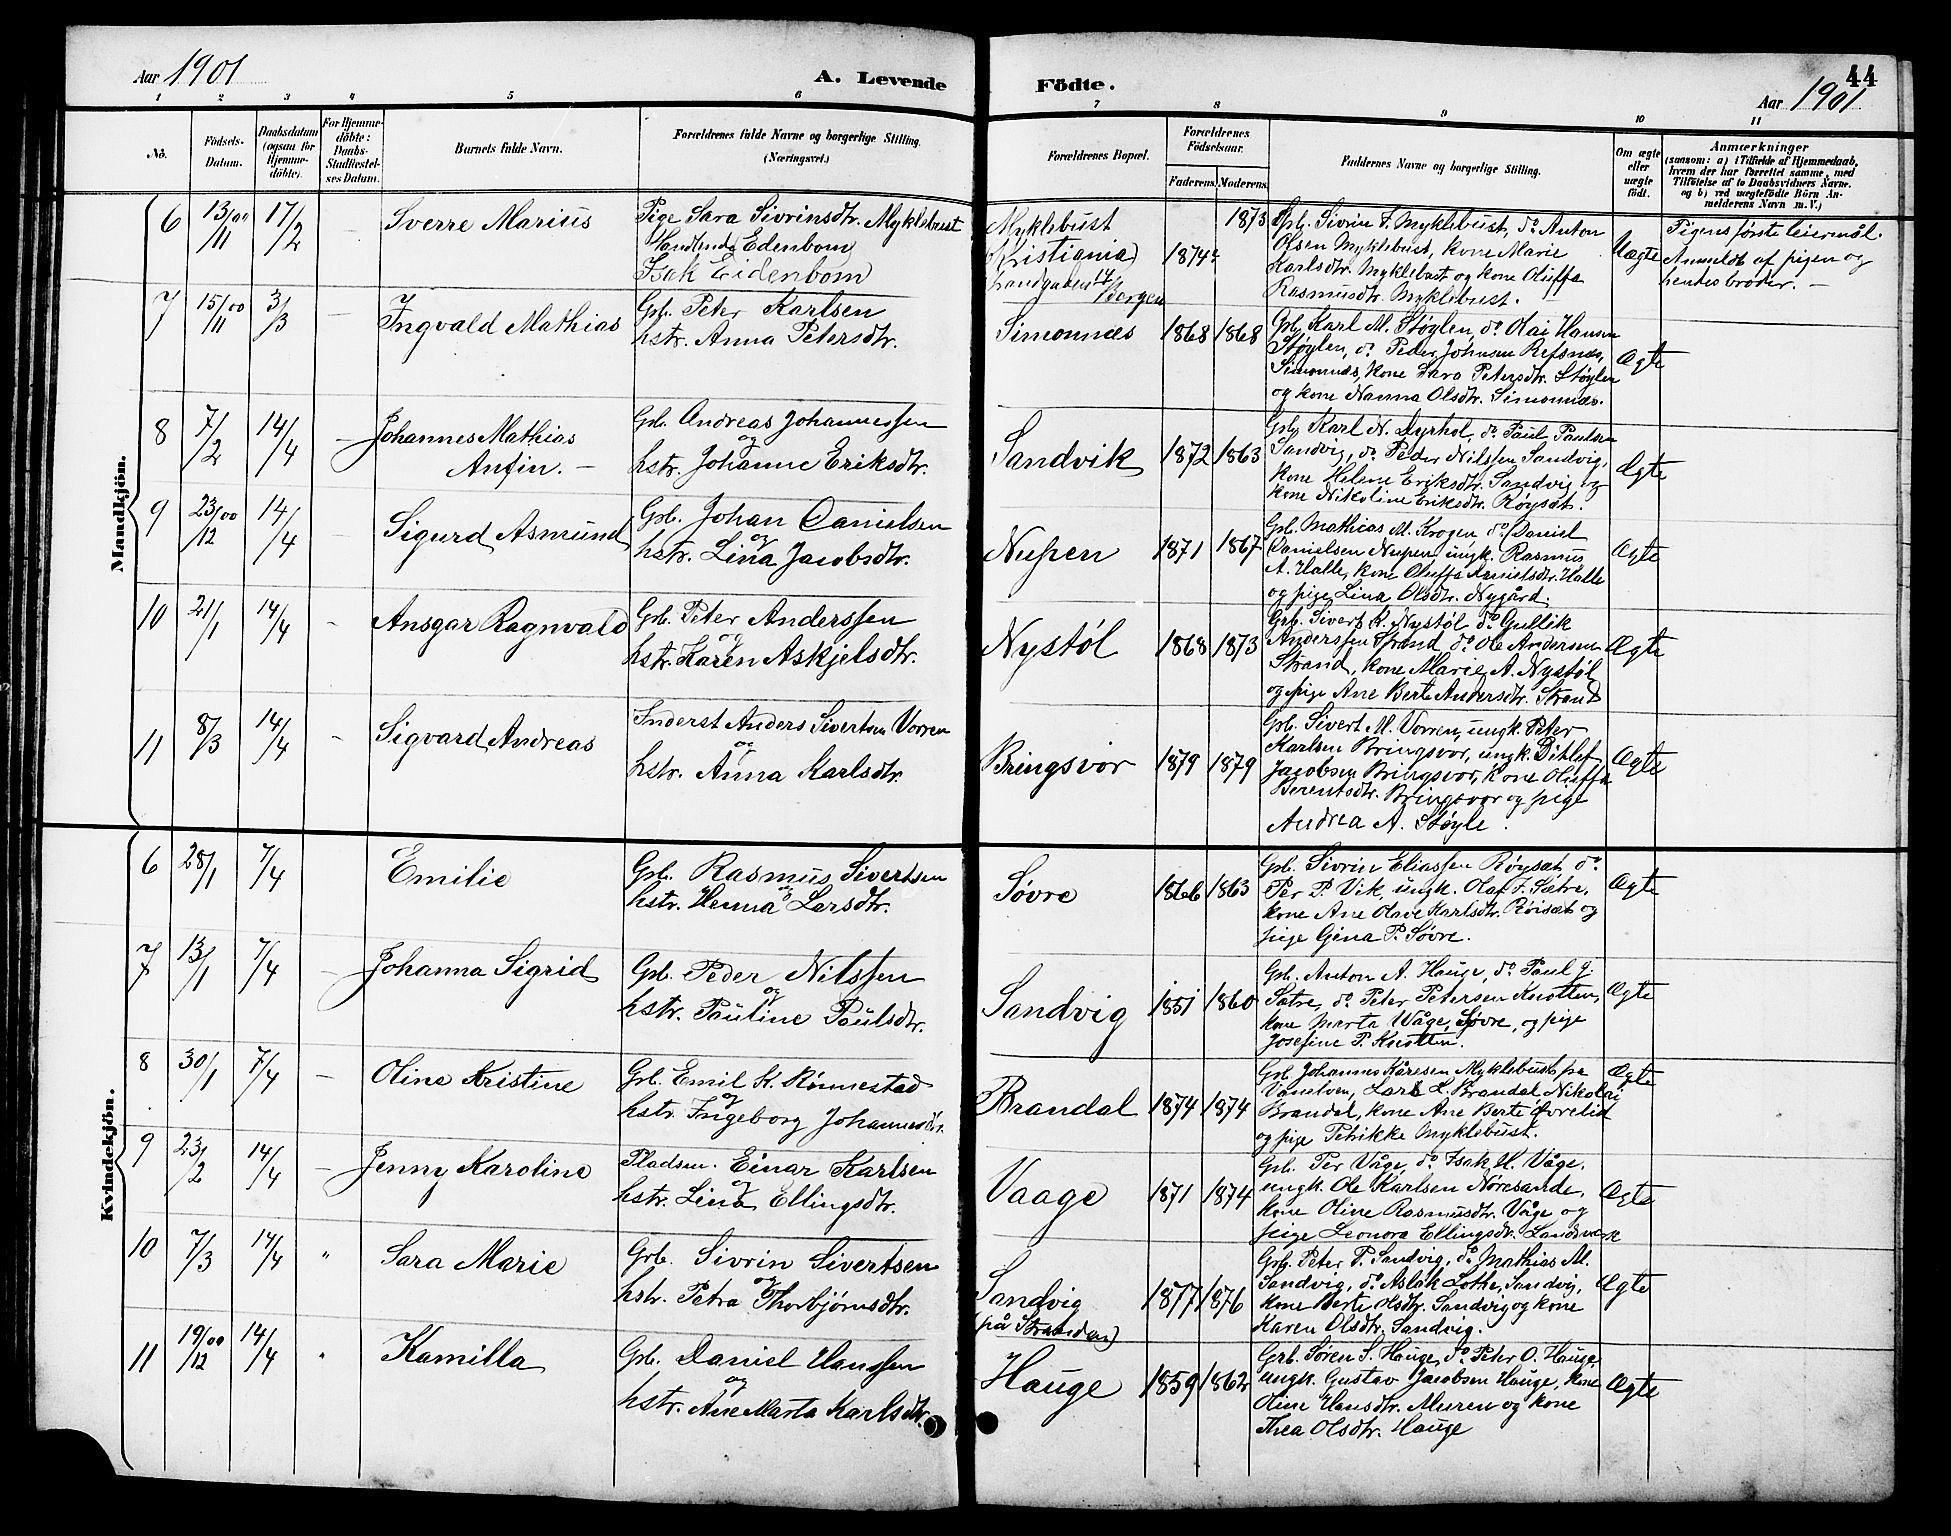 Aar 1901
A. Levende
Födte.
44
Aar 1901
1 2 3 4 5 6 7 8 9 10 11
No.
Födsels-
Datum.
Daabsdatum
(ogsaa for
Hjemme-
døbte).
For Hjemme-
döbte:
Daabs-
Stadfæstel-
ses Datum.
Barnets fulde Navn.
Forældrenes fulde Navne og borgerlige Stilling.
(Næringsvei.)
Forældrenes Bopæl.
Forældrenes
Födselsaar.
Faderens. Moderens.
Faddernes Navne og borgerlige Stilling.
Om ægte
eller
uægte
födt.
Anmærkninger
(saasom: a) i Tilfælde af Hjemmedaab,
hvem der har forrettet samme, med
Tilföielse af to Daabsvidners Navne.
og b) ved uægtefödte Börn An-
melderens Navn m.V.)
Mandkjön.
6 13/11 00 17/2 – Sverre Marius
Pige Sara Sivrinsdtr. Myklebust
Handlende Edenbom
Isak Eidenbom
Myklebust
(Kristiania)
Landgaden 14/Bergen
1874? 1873
Grb. Sivrin F. Myklebust, do Anton
Olsen Myklebust, kone Marie
Karlsdtr. Myklebust og kone Oluffa
Rasmusdtr. Myklebust.
Uægte
Pigens første leiermål.
Anmeldt af pigen og
hendes broder. –
7 15/11 00 3/3 – Ingvald Mathias
Grb. Peter Karlsen
hstr. Anna Petersdtr.
Simonnæs 1868 1868
Grb. Karl M. Støylen, do Olai Hansen
Støylen, do Peder Johnsen Refsnæs,
Simonnæs, kone Sara Petersdtr. Støylen
og kone Nanna Olsdtr. Simonnæs.
Ægte
8 7/2 14/4 – Johannes Mathias
Anfin. –
Grb. Andreas Johannessen
og
hstr. Johanne Eriksdtr.
Sandvik 1872 1863
Grb. Karl N. Dyrhol, do Paul Paulsen
Sandvig, do Peder Nilssen Sandvig,
kone Helene Eriksdtr. Sandvig og
kone Nikoline Eriksdtr. Røysæt.
Ægte
9 23/12 00 14/4 Sigurd Asmund
Grb. Johan Danielsen
og
hstr. Lina Jacobsdtr.
Nupen 1871 1867
Grb. Mathias M. Krogen, do Daniel
Danielsen Nupen, ungk. Rasmus
A. Halle, kone Oluffa Halle
og pige Lina Olsdtr. Nygård.
Ægte
10 21/1 14/4 – Ansgar Ragnvald
Grb. Peter Anderssen
og
hstr. Karen Askjelsdtr.
Nystøl 1868 1873
Grb. Sivert K. Nystøl do Gullik
Anderssen Strand, do Ole Andersen
Strand, kone Marie A. Nystøl
og pige Ane Berte Andersdtr. Strand
Ægte
11 8/3 14/4 – Sigvard Andreas
Inderst Anders Sivertsen Vorren
og
hstr. Anna Karlsdtr.
Bringsvor 1879 1879
Grb. Sivert M. Vorren, ungk. Peter
Karlsen Bringsvor, ungk. Ditlef
Jacobsen Bringsvor, kone Oluffa
Berentsdtr. Bringsvor og pige
Andrea A. Støyle.
Ægte
Kvindekjön.
6 28/1 7/4 Emilie
Grb. Rasmus Sivertsen
og
hstr. Hanna Larsdtr.
Søvre 1866 1863
Grb. Sivrin Eliassen Røysæt, do
Per P. Vik, ungk. Olaf J. Sætre,
kone Ane Olave Karlsdtr. Röisæt og
pige Gina P. Søvre.
Ægte
7 13/1 7/4 – Johanna Sigrid
Grb. Peder Nilssen
og
hstr. Pauline Paulsdtr.
Sandvig 1851 1860
Grb. Anton A. Hauge, do Paul J.
Sætre, do Peter Petersen Knotten,
kone Marta Våge, Søvre, og pige
Josefine P. Knotten.
Ægte
8 30/1 7/4 – Oline Kristine
Grb. Emil K. Rønnestad
og
hstr. Ingeborg Johannesdtr.
Brandal 1874 1874
Grb. Johannes Kåresen Myklebust på
Vanelven, Lars L. Brandal, Nikolai
Brandal, kone Ane Berte Øvrelid
og pige Petrikke Myklebust.
Ægte
9 23/2 14/4 – Jenny Karoline
Pladsm. Einar Karlsen
og
hstr. Lina Ellingsdtr.
Vaage 1871 1874
Grb. Per Våge, do Isak H. Våge.
ungk. Ole Karlsen Nøresande,
kone Oline Rasmusdtr. Våge og
pige Leonora Ellingsdtr. Landsværk
Ægte
10 7/3 14/4 " Sara Marie
Grb. Sivrin Sivertsen
og
hstr. Petra Thorbjørnsdtr.
Sandvig
(på Stranden)
1877 1876
Grb. Peter P. Sandvig, do Mathias M.
Sandvig, do Aslak Lothe, Sandvig,
kone Berte Olsdtr. Sandvig og kone
Karen Olsdtr. Sandvig.
Ægte
11 19/12 00 14/4 " Kamilla
Grb. Daniel Hanssen
og
hstr. Ane Marta Karlsdtr.
Hauge 1859 1862
Grb. Søren S. Hauge, do Peter O. Hauge,
ungk. Gustav Jacobsen Hauge, kone
Oline Hansdtr. Muren og kone
Thea Olsdtr. Hauge
Ægte